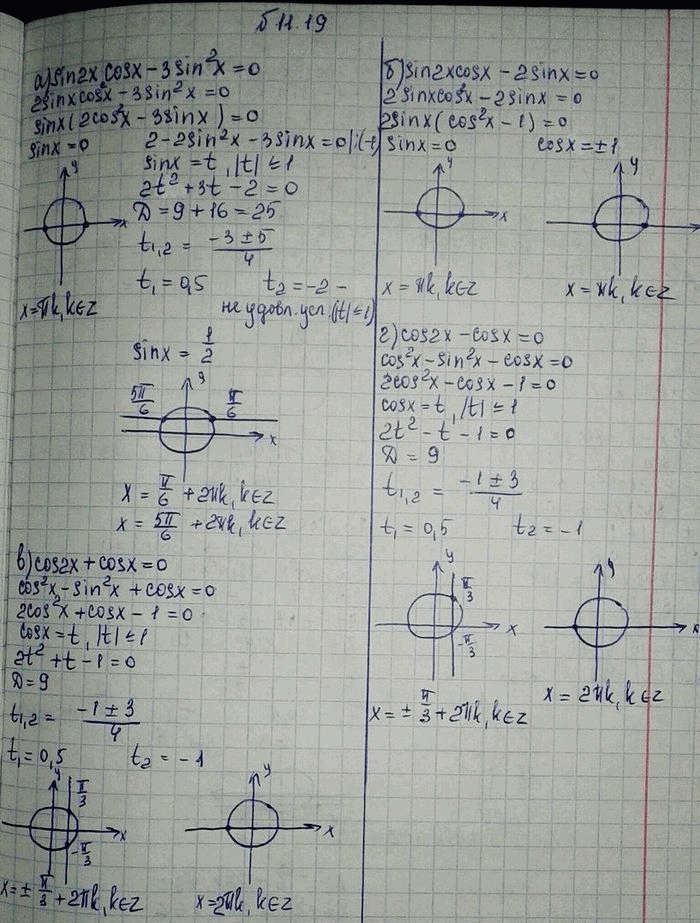 §11.19
а) sin2x cosx – 3sin²x = 0
2sinxcos²x – 3sin²x = 0
sinx(2cos²x – 3sinx) = 0
sinx = 0 2 – 2sin²x – 3sinx = 0 |:(-1)
sinx = t, |t| ≤ 1
2t² + 3t – 2 = 0
D = 9 + 16 = 25
t₁,₂ = (-3 ± 5)/4
t₁ = 0,5 t₂ = -2 –
не удовл. усл. (|t| ≤ 1)
y
x
x = πk, k∈Z
sinx = 1/2
y
5π/6 π/6
x
x = π/6 + 2πk, k∈Z
x = 5π/6 + 2πk, k∈Z
в) cos2x + cosx = 0
cos²x – sin²x + cosx = 0
2cos²x + cosx – 1 = 0
cosx = t, |t| ≤ 1
2t² + t – 1 = 0
D = 9
t₁,₂ = (-1 ± 3)/4
t₁ = 0,5 t₂ = -1
y π/3
x
-π/3
y
x
x = ± π/3 + 2πk, k∈Z x = 2πk, k∈Z
б) sin2xcosx – 2sinx = 0
2sinxcos²x – 2sinx = 0
2sinx(cos²x – 1) = 0
sinx = 0 cosx = ±1
y y
x
x = πk, k∈Z x = πk, k∈Z
г) cos2x – cosx = 0
cos²x – sin²x – cosx = 0
2cos²x – cosx – 1 = 0
cosx = t, |t| ≤ 1
2t² – t – 1 = 0
D = 9
t₁,₂ = (-1 ± 3)/4
t₁ = 0,5 t₂ = -1
y π/3
x
-π/3
y
x
x = ± π/3 + 2πk, k∈Z x = 2πk, k∈Z